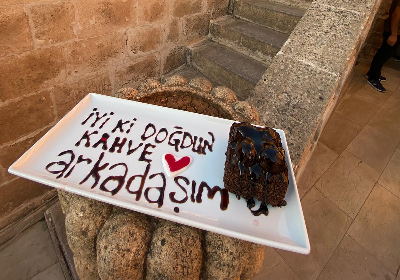 iYi Ki DOĞDUN
KAHVE
arkadaşım